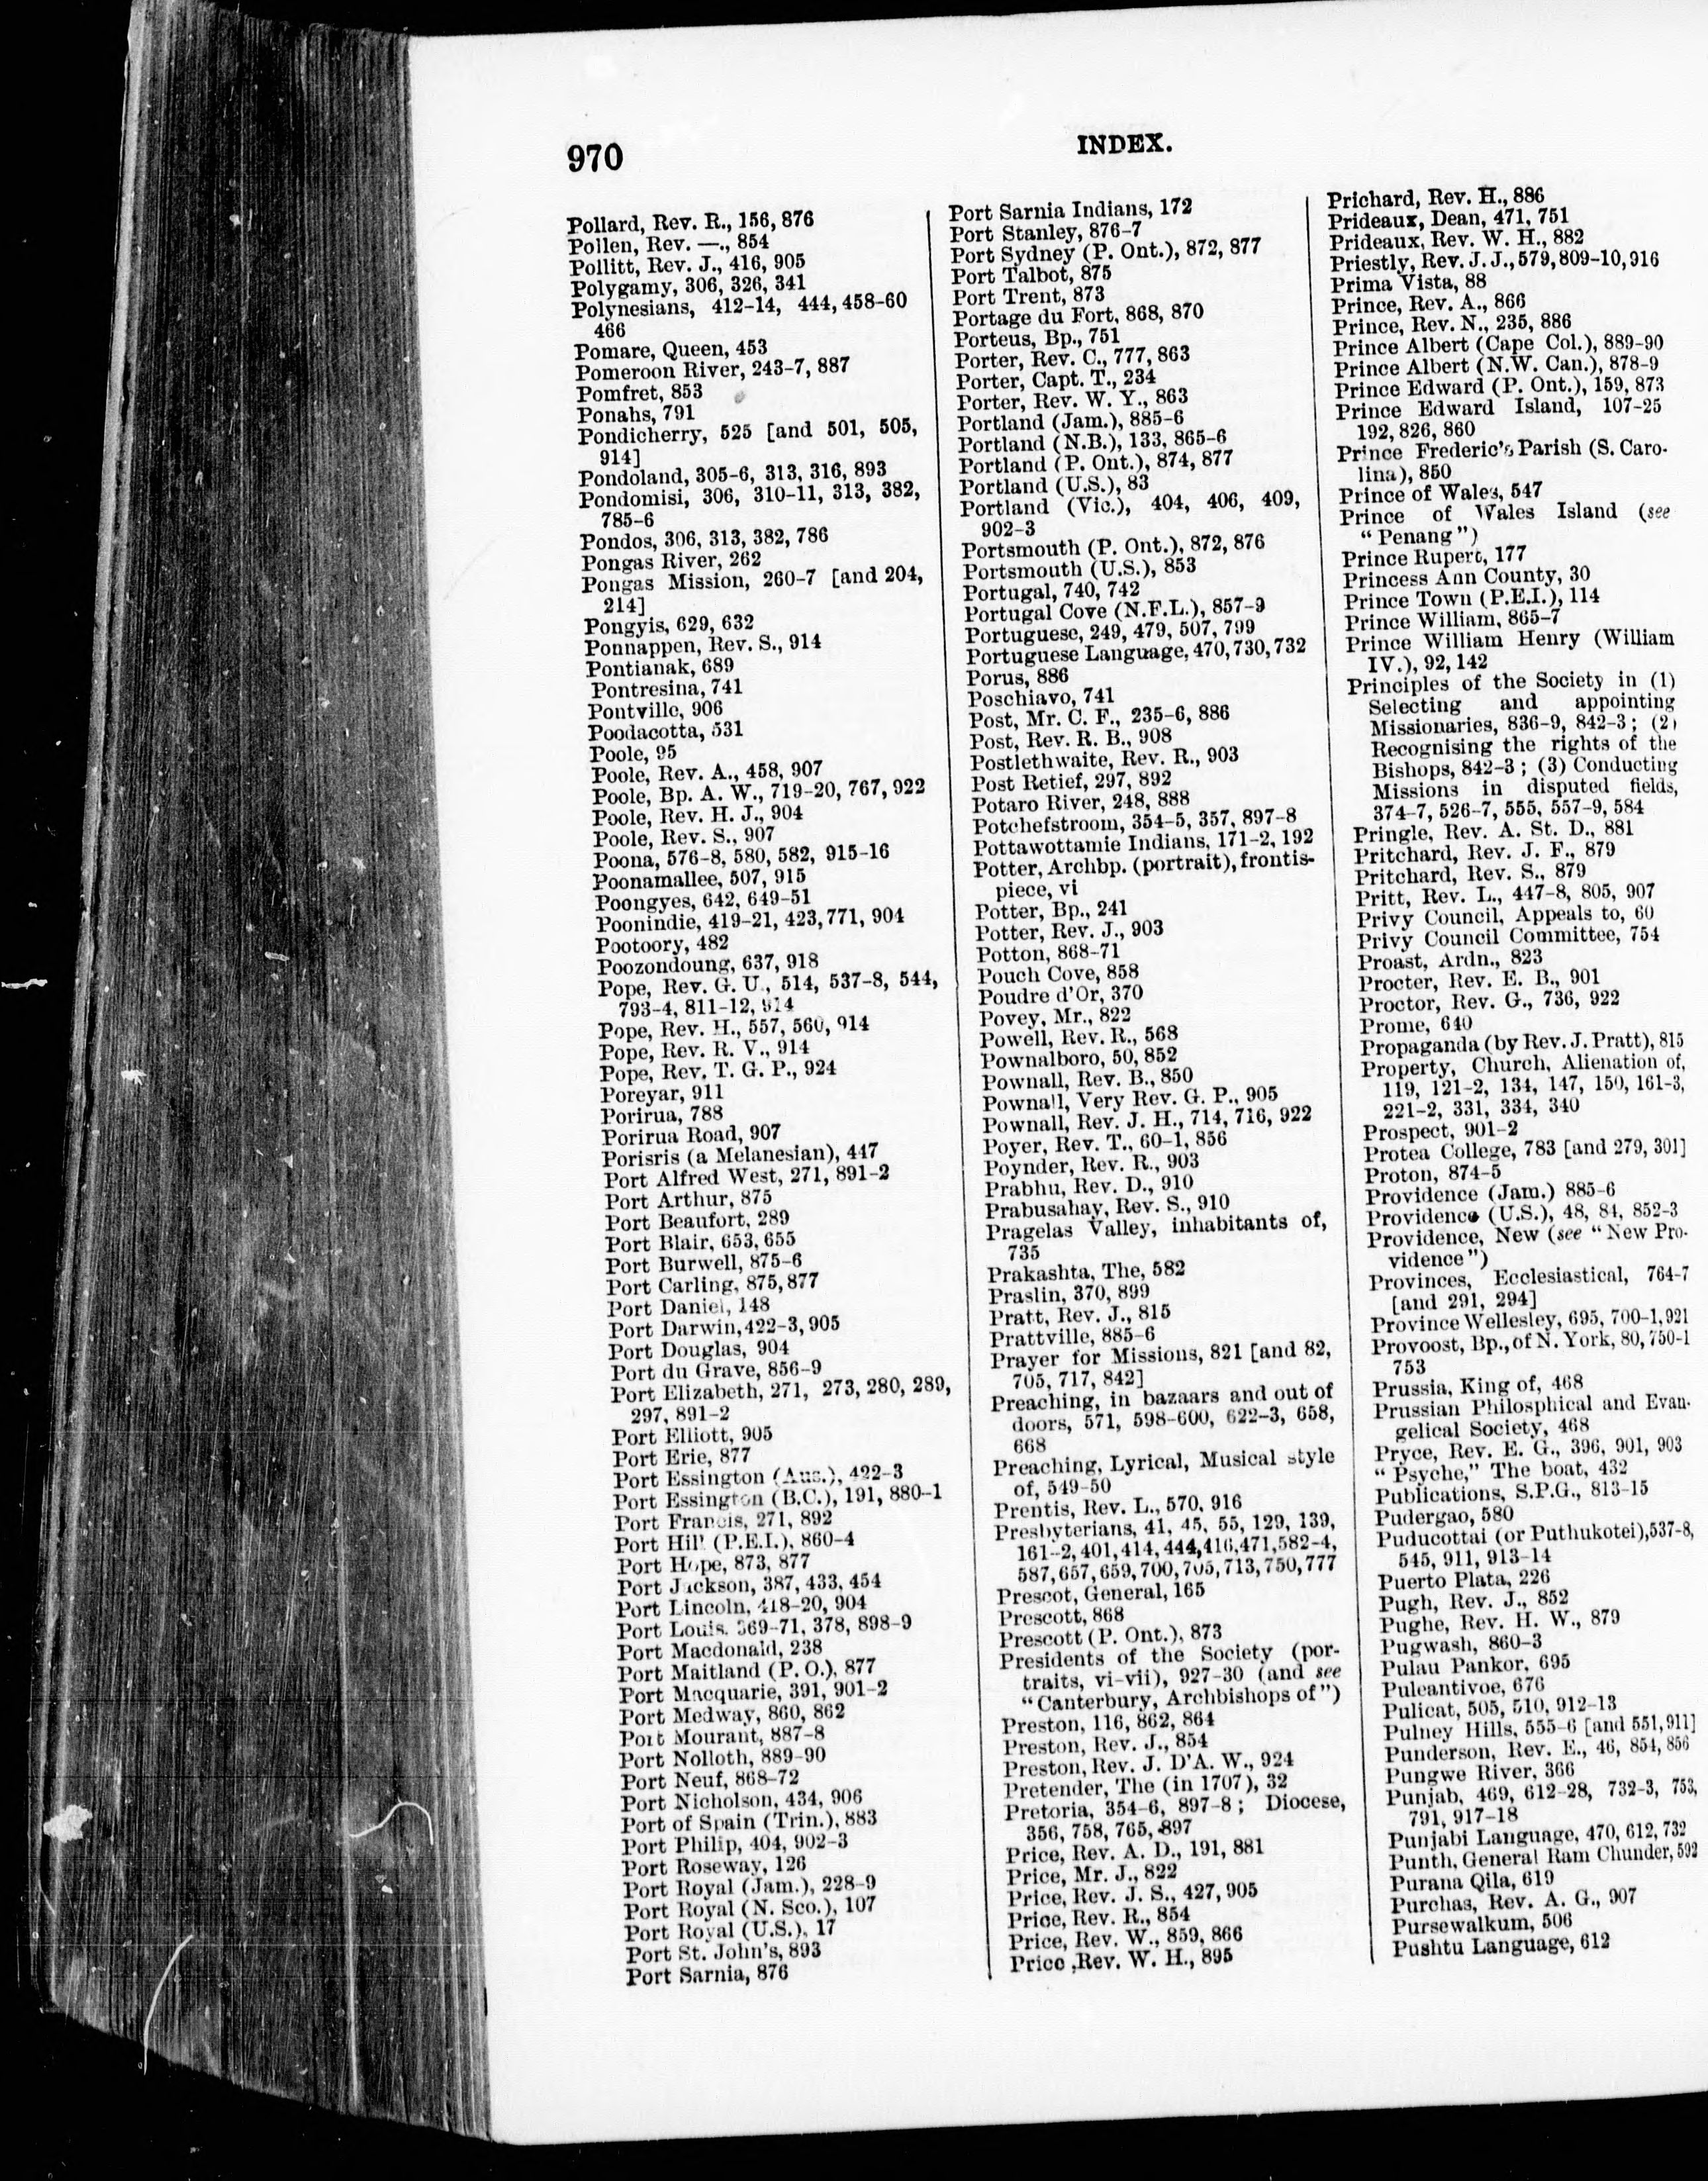 970
INDEX.
Pollard, Rev. R., 156, 876
Pollen, Rev. —., 854
Pollitt, Rev. J., 416, 905
Polygamy, 306, 326, 341
Polynesians, 412-14, 444, 458-60
466
Pomare, Queen, 453
Pomeroon River, 243-7, 887
Pomfret, 853
Ponahs, 791
Pondicherry, 525 [and 501, 505,
914]
Pondoland, 305-6, 313, 316, 893
Pondomisi, 306, 310-11, 313, 382,
785-6
Pondos, 306, 313, 382, 786
Pongas River, 262
Pongas Mission, 260-7 [and 204,
214]
Pongyis, 629, 632
Ponnappen, Rev. S., 914
Pontianak, 689
Pontresina, 741
Pontville, 906
Poodacotta, 531
Poole, 95
Poole, Rev. A., 458, 907
Poole, Bp. A. W., 719-20, 767, 922
Poole, Rev. H. J., 904
Poole, Rev. S., 907
Poona, 576-8, 580, 582, 915-16
Poonamallee, 507, 915
Poongyes, 642, 649-51
Poonindie, 419-21, 423, 771, 904
Pootoory, 482
Poozondoung, 637, 918
Pope, Rev. G. U., 514, 537-8, 544,
793-4, 811-12, 914
Pope, Rev. H., 557, 560, 914
Pope, Rev. R. V., 914
Pope, Rev. T. G. P., 924
Poreyar, 911
Porirua, 788
Porirua Road, 907
Porisris (a Melanesian), 447
Port Alfred West, 271, 891-2
Port Arthur, 875
Port Beaufort, 289
Port Blair, 653, 655
Port Burwell, 875-6
Port Carling, 875, 877
Port Daniel, 148
Port Darwin, 422-3, 905
Port Douglas, 904
Port du Grave, 856-9
Port Elizabeth, 271, 273, 280, 289,
297, 891-2
Port Elliott, 905
Port Erie, 877
Port Essington (Aus.), 422-3
Port Essington (B.C.), 191, 880-1
Port Francis, 271, 892
Port Hill (P.E.I.), 860-4
Port Hope, 873, 877
Port Jackson, 387, 433, 454
Port Lincoln, 418-20, 904
Port Louis, 369-71, 378, 898-9
Port Macdonald, 238
Port Maitland (P. O.), 877
Port Macquarie, 391, 901-2
Port Medway, 860, 862
Port Mourant, 887-8
Port Nolloth, 889-90
Port Neuf, 868-72
Port Nicholson, 434, 906
Port of Spain (Trin.), 883
Port Philip, 404, 902-3
Port Roseway, 126
Port Royal (Jam.), 228-9
Port Royal (N. Sco.), 107
Port Royal (U.S.), 17
Port St. John's, 893
Port Sarnia, 876
Port Sarnia Indians, 172
Port Stanley, 876-7
Port Sydney (P. Ont.), 872, 877
Port Talbot, 875
Port Trent, 873
Portage du Fort, 868, 870
Porteus, Bp., 751
Porter, Rev. C., 777, 863
Porter, Capt. T., 234
Porter, Rev. W. Y., 863
Portland (Jam.), 885-6
Portland (N.B.), 133, 865-6
Portland (P. Ont.), 874, 877
Portland (U.S.), 83
Portland (Vic.), 404, 406, 409,
902-3
Portsmouth (P. Ont.), 872, 876
Portsmouth (U.S.), 853
Portugal, 740, 742
Portugal Cove (N.F.L.), 857-9
Portuguese, 249, 479, 507, 799
Portuguese Language, 470, 730, 732
Porus, 886
Poschiavo, 741
Post, Mr. C. F., 235-6, 886
Post, Rev. R. B., 908
Postlethwaite, Rev. R., 903
Post Retief, 297, 892
Potaro River, 248, 888
Potchefstroom, 354-5, 357, 897-8
Pottawottamie Indians, 171-2, 192
Potter, Archbp. (portrait), frontis-
piece, vi
Potter, Bp., 241
Potter, Rev. J., 903
Potton, 868-71
Pouch Cove, 858
Poudre d'Or, 370
Povey, Mr., 822
Powell, Rev. R., 568
Pownalboro, 50, 852
Pownall, Rev. B., 850
Pownall, Very Rev. G. P., 905
Pownall, Rev. J. H., 714, 716, 922
Poyer, Rev. T., 60-1, 856
Poynder, Rev. R., 903
Prabhu, Rev. D., 910
Prabusahay, Rev. S., 910
Pragelas Valley, inhabitants of,
735
Prakashta, The, 582
Praslin, 370, 899
Pratt, Rev. J., 815
Prattville, 885-6
Prayer for Missions, 821 [and 82,
705, 717, 842]
Preaching, in bazaars and out of
doors, 571, 598-600, 622-3, 658,
668
Preaching, Lyrical, Musical style
of, 549-50
Prentis, Rev. L., 570, 916
Presbyterians, 41, 45, 55, 129, 139,
161-2, 401, 414, 444, 416, 471, 582-4,
587, 657, 659, 700, 705, 713, 750, 777
Prescot, General, 165
Prescott, 868
Prescott (P. Ont.), 873
Presidents of the Society (por-
traits, vi-vii), 927-30 (and see
"Canterbury, Archbishops of")
Preston, 116, 862, 864
Preston, Rev. J., 854
Preston, Rev. J. D'A. W., 924
Pretender, The (in 1707), 32
Pretoria, 354-6, 897-8; Diocese,
356, 758, 765, 897
Price, Rev. A. D., 191, 881
Price, Mr. J., 822
Price, Rev. J. S., 427, 905
Price, Rev. R., 854
Price, Rev. W., 859, 866
Price ,Rev. W. H., 895
Prichard, Rev. H., 886
Prideaux, Dean, 471, 751
Prideaux, Rev. W. H., 882
Priestly, Rev. J. J., 579, 809-10, 916
Prima Vista, 88
Prince, Rev. A., 866
Prince, Rev. N., 235, 886
Prince Albert (Cape Col.), 889-90
Prince Albert (N.W. Can.), 878-9
Prince Edward (P. Ont.), 159, 873
Prince Edward Island, 107-25
192, 826, 860
Prince Frederic's Parish (S. Caro-
lina), 850
Prince of Wales, 547
Prince of Wales Island (see
"Penang")
Prince Rupert, 177
Princess Ann County, 30
Prince Town (P.E.I.), 114
Prince William, 865-7
Prince William Henry (William
IV.), 92, 142
Principles of the Society in (1)
Selecting and appointing
Missionaries, 836-9, 842-3; (2)
Recognising the rights of the
Bishops, 842-3; (3) Conducting
Missions in disputed fields,
374-7, 526-7, 555, 557-9, 584
Pringle, Rev. A. St. D., 881
Pritchard, Rev. J. F., 879
Pritchard, Rev. S., 879
Pritt, Rev. L., 447-8, 805, 907
Privy Council, Appeals to, 60
Privy Council Committee, 754
Proast, Ardn., 823
Procter, Rev. E. B., 901
Proctor, Rev. G., 736, 922
Prome, 640
Propaganda (by Rev. J. Pratt), 815
Property, Church, Alienation of,
119, 121-2, 134, 147, 150, 161-3,
221-2, 331, 334, 340
Prospect, 901-2
Protea College, 783 [and 279, 301]
Proton, 874-5
Providence (Jam.) 885-6
Providence (U.S.), 48, 84, 852-3
Providence, New (see "New Pro-
vidence")
Provinces, Ecclesiastical, 764-7
[and 291, 294]
Province Wellesley, 695, 700-1, 921
Provoost, Bp., of N. York, 80, 750-1
753
Prussia, King of, 468
Prussian Philosphical and Evan-
gelical Society, 468
Pryce, Rev. E. G., 396, 901, 903
"Psyche," The boat, 432
Publications, S.P.G., 813-15
Pudergao, 580
Puducottai (or Puthukotei), 537-8,
545, 911, 913-14
Puerto Plata, 226
Pugh, Rev. J., 852
Pughe, Rev. H. W., 879
Pugwash, 860-3
Pulau Pankor, 695
Puleantivoe, 676
Pulicat, 505, 510, 912-13
Pulney Hills, 555-6 [and 551, 911]
Punderson, Rev. E., 46, 854, 856
Pungwe River, 366
Punjab, 469, 612-28, 732-3, 753,
791, 917-18
Punjabi Language, 470, 612, 732
Punth, General Ram Chunder, 592
Purana Qila, 619
Purchas, Rev. A. G., 907
Pursewalkum, 506
Pushtu Language, 612